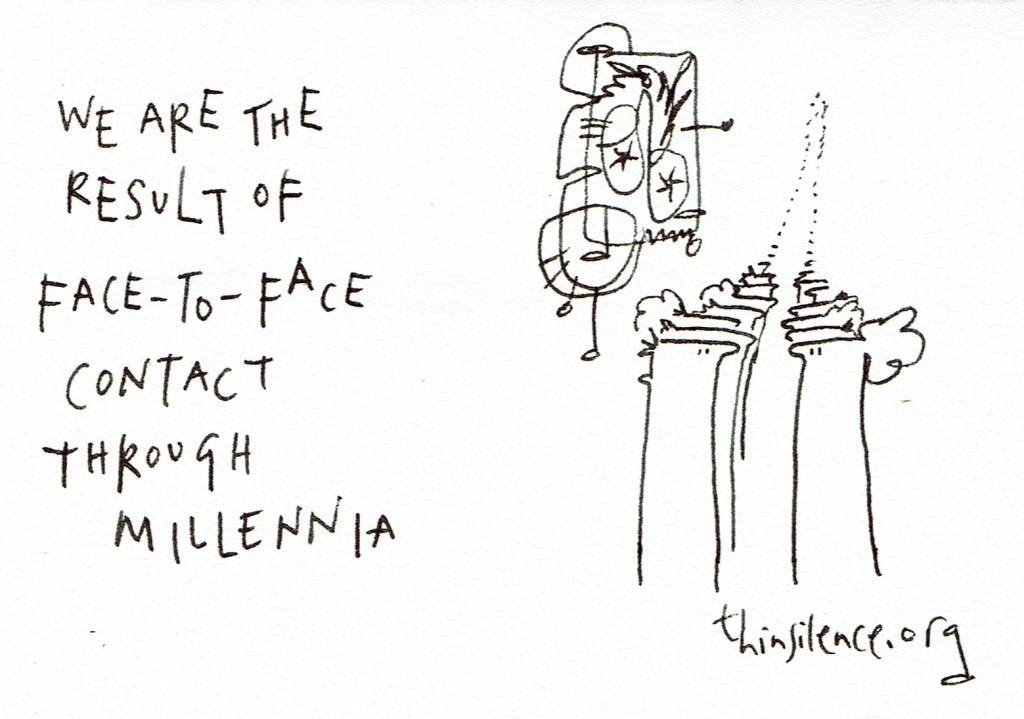 WE ARE THE
RESULT OF
FACE-TO-FACE
CONTACT
THROUGH
MILLENNIA
thinsilence.org